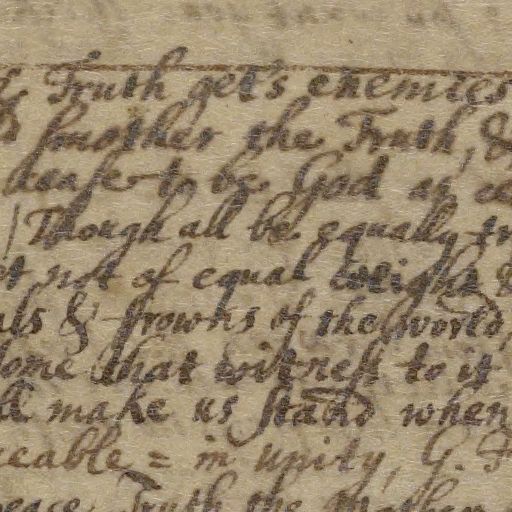 Truth get's enemies
smother the Truth, &
cease to be God as
Though all be equally
not of equal weight &
& frowns of the world,
that witness to it
make us stand when
= in Unity, G.
peace, Truth the Mother